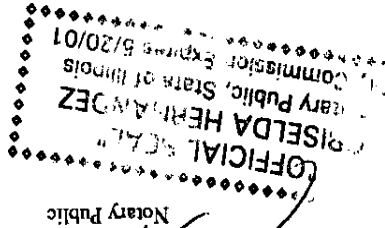 Notary Public
"OFFICIAL SEAL"
GRISELDA HERNANDEZ
Notary Public, State of Illinois
Commission Expires 5/20/01